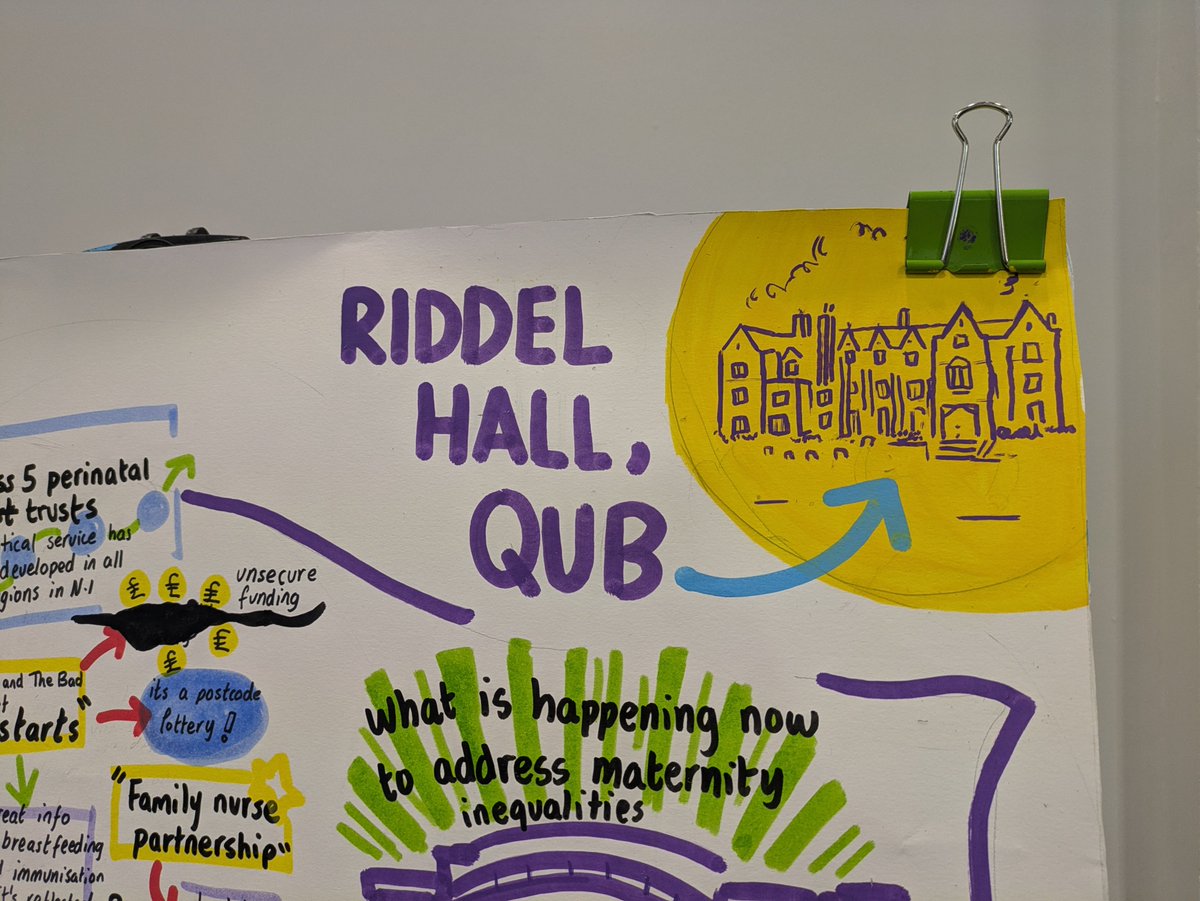 RIDDEL
HALL,
QUB
5 perinatal
trusts
service has
developed in all
in N.I
£ £ £
unsecure
funding
£
£
and The Bad
starts"
its a postcode
lottery!!
What is happening now
to address maternity
inequalities
"Family nurse
partnership"
info
breastfeeding
immunisation